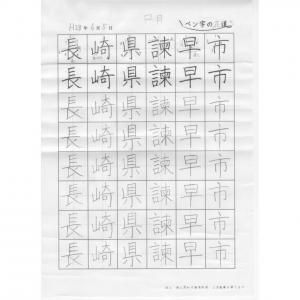 H28年6月5日
ペン字の
長崎県諫早市
長崎県諫早市
長崎県諫早市
長崎県諫早市
長崎県諫早市
長崎県諫早市
長崎県諫早市
長崎県諫早市